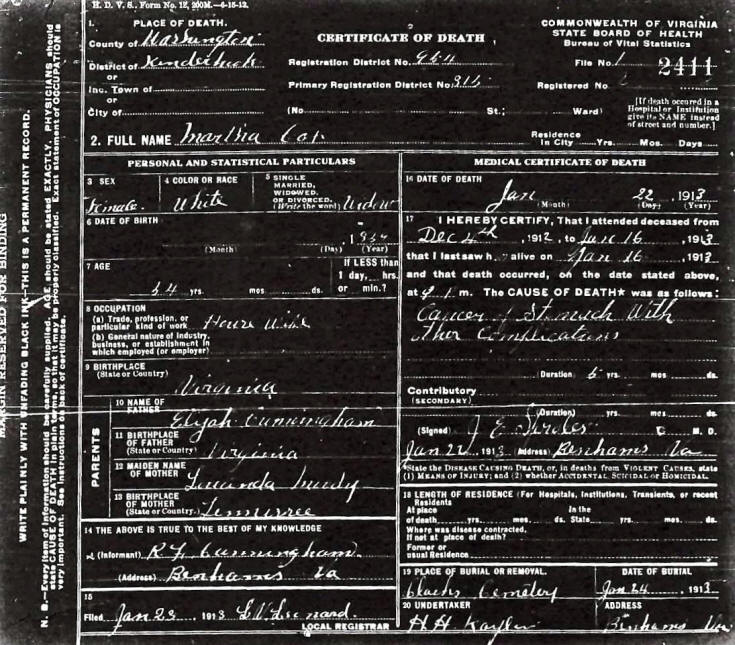 H. D. V. S., Form No. 12, 200M.—6-15-12.
1. PLACE OF DEATH.
County of Washington
District of Kinderhook
or
Inc. Town of
or
City of
CERTIFICATE OF DEATH
Registration District No. 954
Primary Registration District No. 915
(No. St.; Ward)
COMMONWEALTH OF VIRGINIA
STATE BOARD OF HEALTH
Bureau of Vital Statistics
File No. 2411
Registered No.
[If death occured in a
Hospital or Institution
give its NAME instead
of street and number.]
2. FULL NAME Martha
Residence
In City Yrs. Mos. Days
PERSONAL AND STATISTICAL PARTICULARS
3 SEX
Female
4 COLOR OR RACE
White
5 SINGLE
MARRIED,
WIDOWED,
OR DIVORCED.
(Write the word) Widow
6 DATE OF BIRTH
(Month) (Day) (Year)
7 AGE
yrs. mos. ds.
If LESS than
1 day, hrs.
or min.?
8 OCCUPATION
(a) Trade, profession, or
particular kind of work House Wife
(b) General nature of industry,
business, or establishment in
which employed (or employer)
9 BIRTHPLACE
(State or Country) Virginia
PARENTS
10 NAME OF
FATHER Elijah Cunningham
11 BIRTHPLACE
OF FATHER
(State or Country) Virginia
12 MAIDEN NAME
OF MOTHER
13 BIRTHPLACE
OF MOTHER
(State or Country) Tennessee
14 THE ABOVE IS TRUE TO THE BEST OF MY KNOWLEDGE
(Informant) R. F. Cunningham.
(Address) Benhams Va
15
Filed Jan 23 1913
LOCAL REGISTRAR
MEDICAL CERTIFICATE OF DEATH
16 DATE OF DEATH
Jan 22, 1913
(Month) (Day) (Year)
17 I HEREBY CERTIFY, That I attended deceased from
Dec 4th, 1912, to Jan 16, 1913
that I last saw h alive on Jan 16, 1913
and that death occurred, on the date stated above,
at m. The CAUSE OF DEATH★ was as follows:
Cancer of Stomach With
other Complications
(Duration) yrs. mos. ds.
Contributory
(SECONDARY)
(Duration) yrs. mos. ds.
(Signed) J E M. D.
Jan 22, 1913 (Address) Benhams Va
★State the DISEASE CAUSING DEATH, or, in deaths from VIOLENT CAUSES, state
(1) MEANS OF INJURY; and (2) whether ACCIDENTAL SUICIDAL or HOMICIDAL.
18 LENGTH OF RESIDENCE (For Hospitals, Institutions, Transients, or recent
Residents
At place In the
of death yrs. mos. ds. State yrs. mos. ds.
Where was disease contracted,
If not at place of death?
Former or
usual Residence
19 PLACE OF BURIAL OR REMOVAL. DATE OF BURIAL
Cemetery Jan 24, 1913
20 UNDERTAKER ADDRESS
H H Kaylor Benhams Va
MARGIN RESERVED FOR BINDING
WRITE PLAINLY WITH UNFADING BLACK INK—THIS IS A PERMANENT RECORD.
N. B.—Every item of information should be carefully supplied. AGE should be stated EXACTLY. PHYSICIANS should
state CAUSE OF DEATH in plain terms, so that it may be properly classified. Exact statement of OCCUPATION is
very important. See instructions on back of certificate.